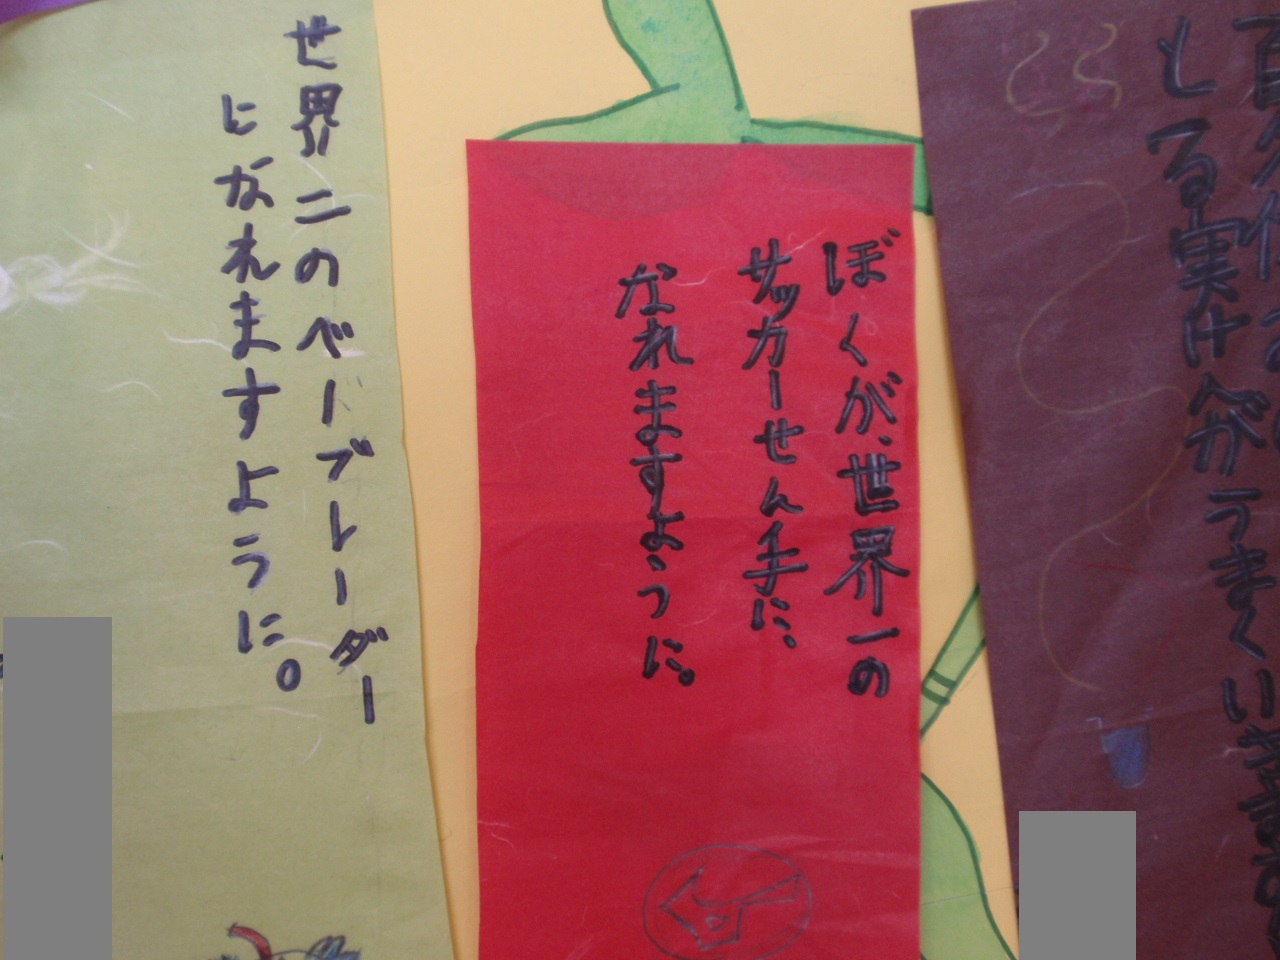 とる実けんがうまくいきますよ
ぼくが、世界一の
サッカーせん手に、
なれますように。
世界二のベーブレーダー
になれますように。